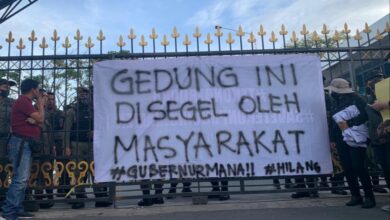 GEDUNG INI
DISEGEL OLEH
MASYARAKAT
#GUBERNURMANA!! #HILANG